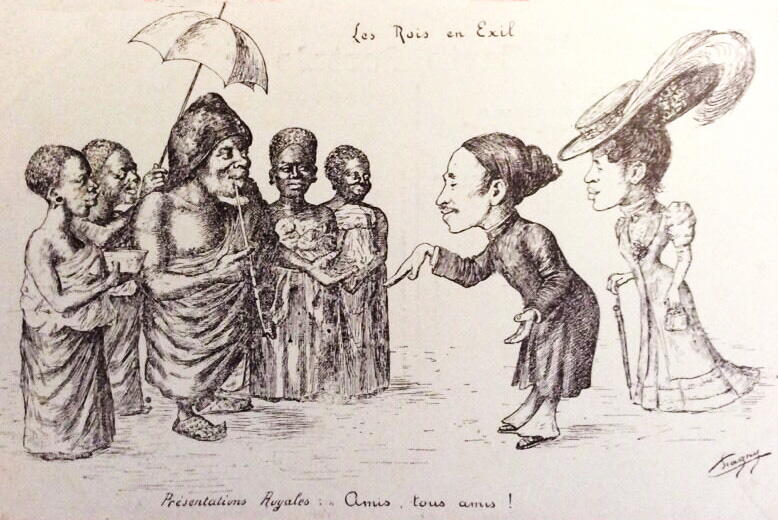 Les Rois en Exil
Présentations Royales : „ Amis, tous amis !